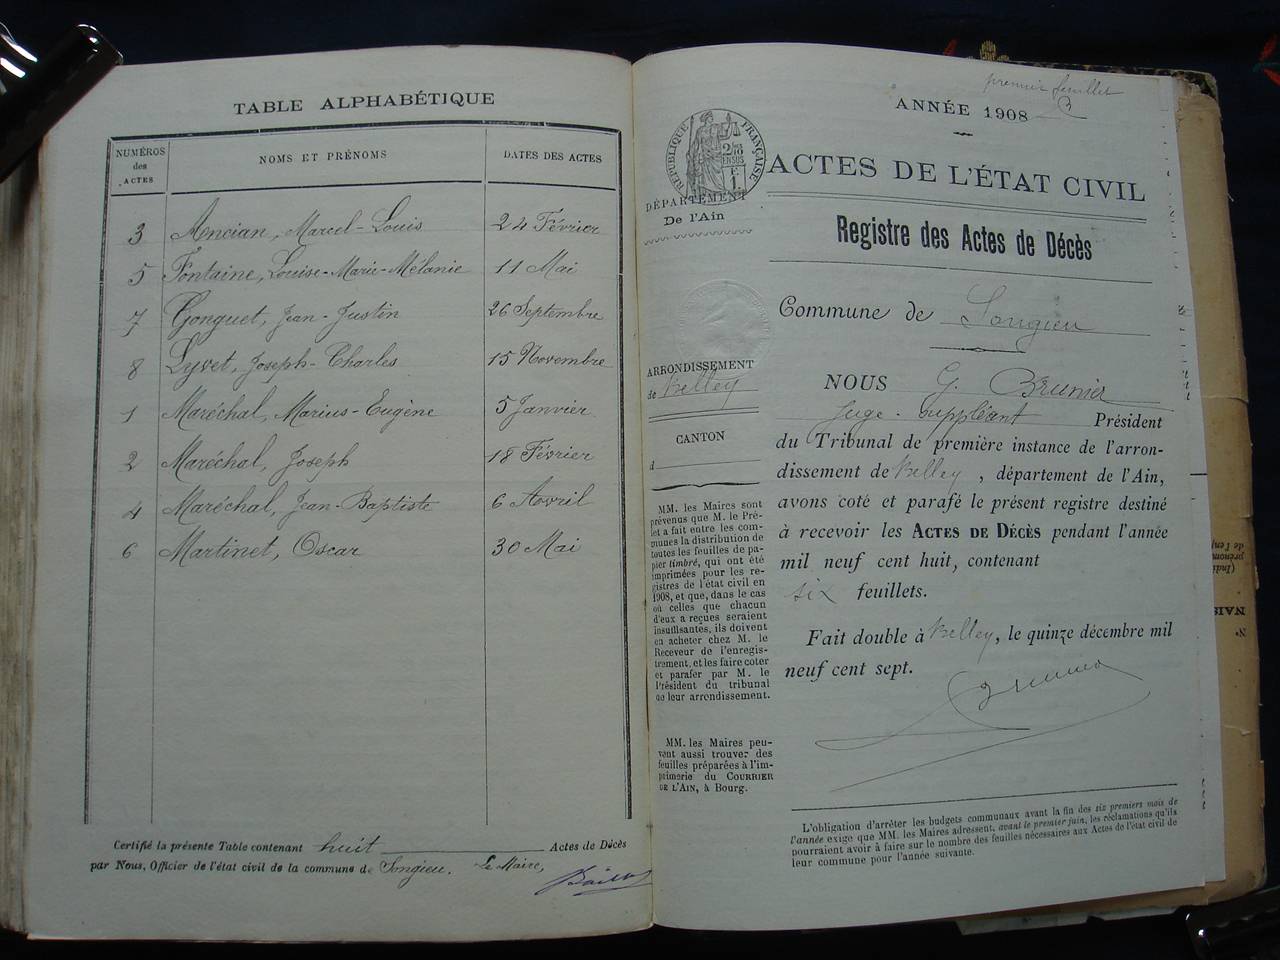 TABLE ALPHABÉTIQUE
NUMÉROS des ACTES
NOMS ET PRÉNOMS
DATES DES ACTES
3 Ancian, Marcel-Louis 24 Février
5 Fontaine, Louise-Marie-Mélanie 11 Mai
7 Gonguet, Jean-Justin 26 Septembre
8 Lyvet, Joseph-Charles 15 Novembre
1 Maréchal, Marius-Eugène 5 Janvier
2 Maréchal, Joseph 18 Février
4 Maréchal, Jean-Baptiste 6 Avril
6 Martinet, Oscar 30 Mai
Certifié la présente Table contenant huit Actes de Décès
par Nous, Officier de l'état civil de la commune de Songieu. Le Maire,
premier feuillet
ANNÉE 1908
RÉPUBLIQUE FRANÇAISE
ACTES DE L'ÉTAT CIVIL
DÉPARTEMENT
De l'Ain
Registre des Actes de Décès
Commune de Songieu
ARRONDISSEMENT
de Belley
CANTON
d
MM. les Maires sont
prévenus que M. le Pré-
fet a fait entre les com-
munes la distribution de
toutes les feuilles de pa-
pier timbré, qui ont été
imprimées pour les re-
gistres de l'état civil en
1908, et que, dans le cas
où celles que chacun
d'eux a reçues seraient
insuffisantes, ils doivent
en acheter chez M. le
Receveur de l'enregis-
trement, et les faire coter
et parafer par M. le
Président du tribunal
de leur arrondissement.
MM. les Maires peu-
vent aussi trouver des
feuilles préparées à l'im-
primerie du COURRIER
DE L'AIN, à Bourg.
NOUS G. Brunier
Juge-suppléant Président
du Tribunal de première instance de l'arron-
dissement de Belley, département de l'Ain,
avons coté et parafé le présent registre destiné
à recevoir les ACTES DE DÉCÈS pendant l'année
mil neuf cent huit, contenant
six feuillets.
Fait double à Belley, le quinze décembre mil
neuf cent sept.
L'obligation d'arrêter les budgets communaux avant la fin des six premiers mois de
l'année exige que MM. les Maires adressent, avant le premier juin, les réclamations qu'ils
pourraient avoir à faire sur le nombre des feuilles nécessaires aux Actes de l'état civil de
leur commune pour l'année suivante.